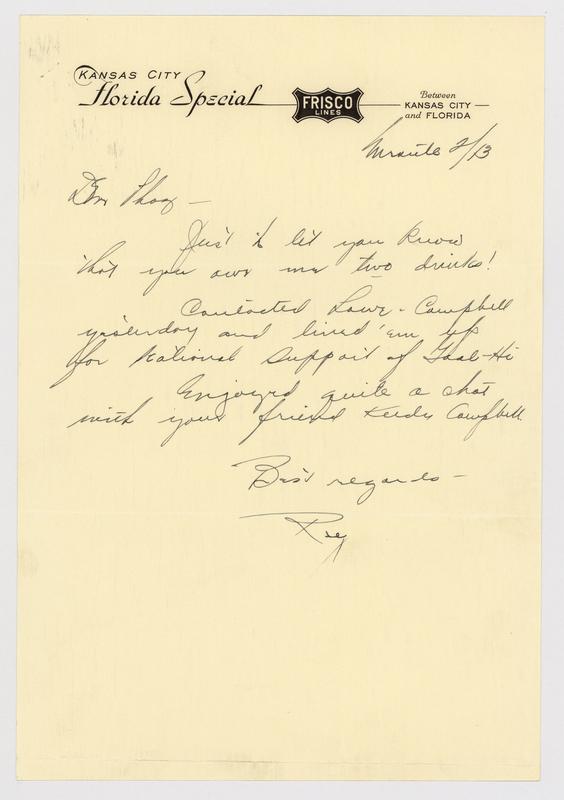 KANSAS CITY
Florida Special
FRISCO
LINES
Between
KANSAS CITY
and FLORIDA
Enroute 2/13
Dear Phog —
Just to let you know
that you owe me two drinks!
Contacted Lowe - Campbell
yesterday and lined 'em up
for National support of Goal-Hi
Enjoyed quite a chat
with your friend Campbell.
Best regards —